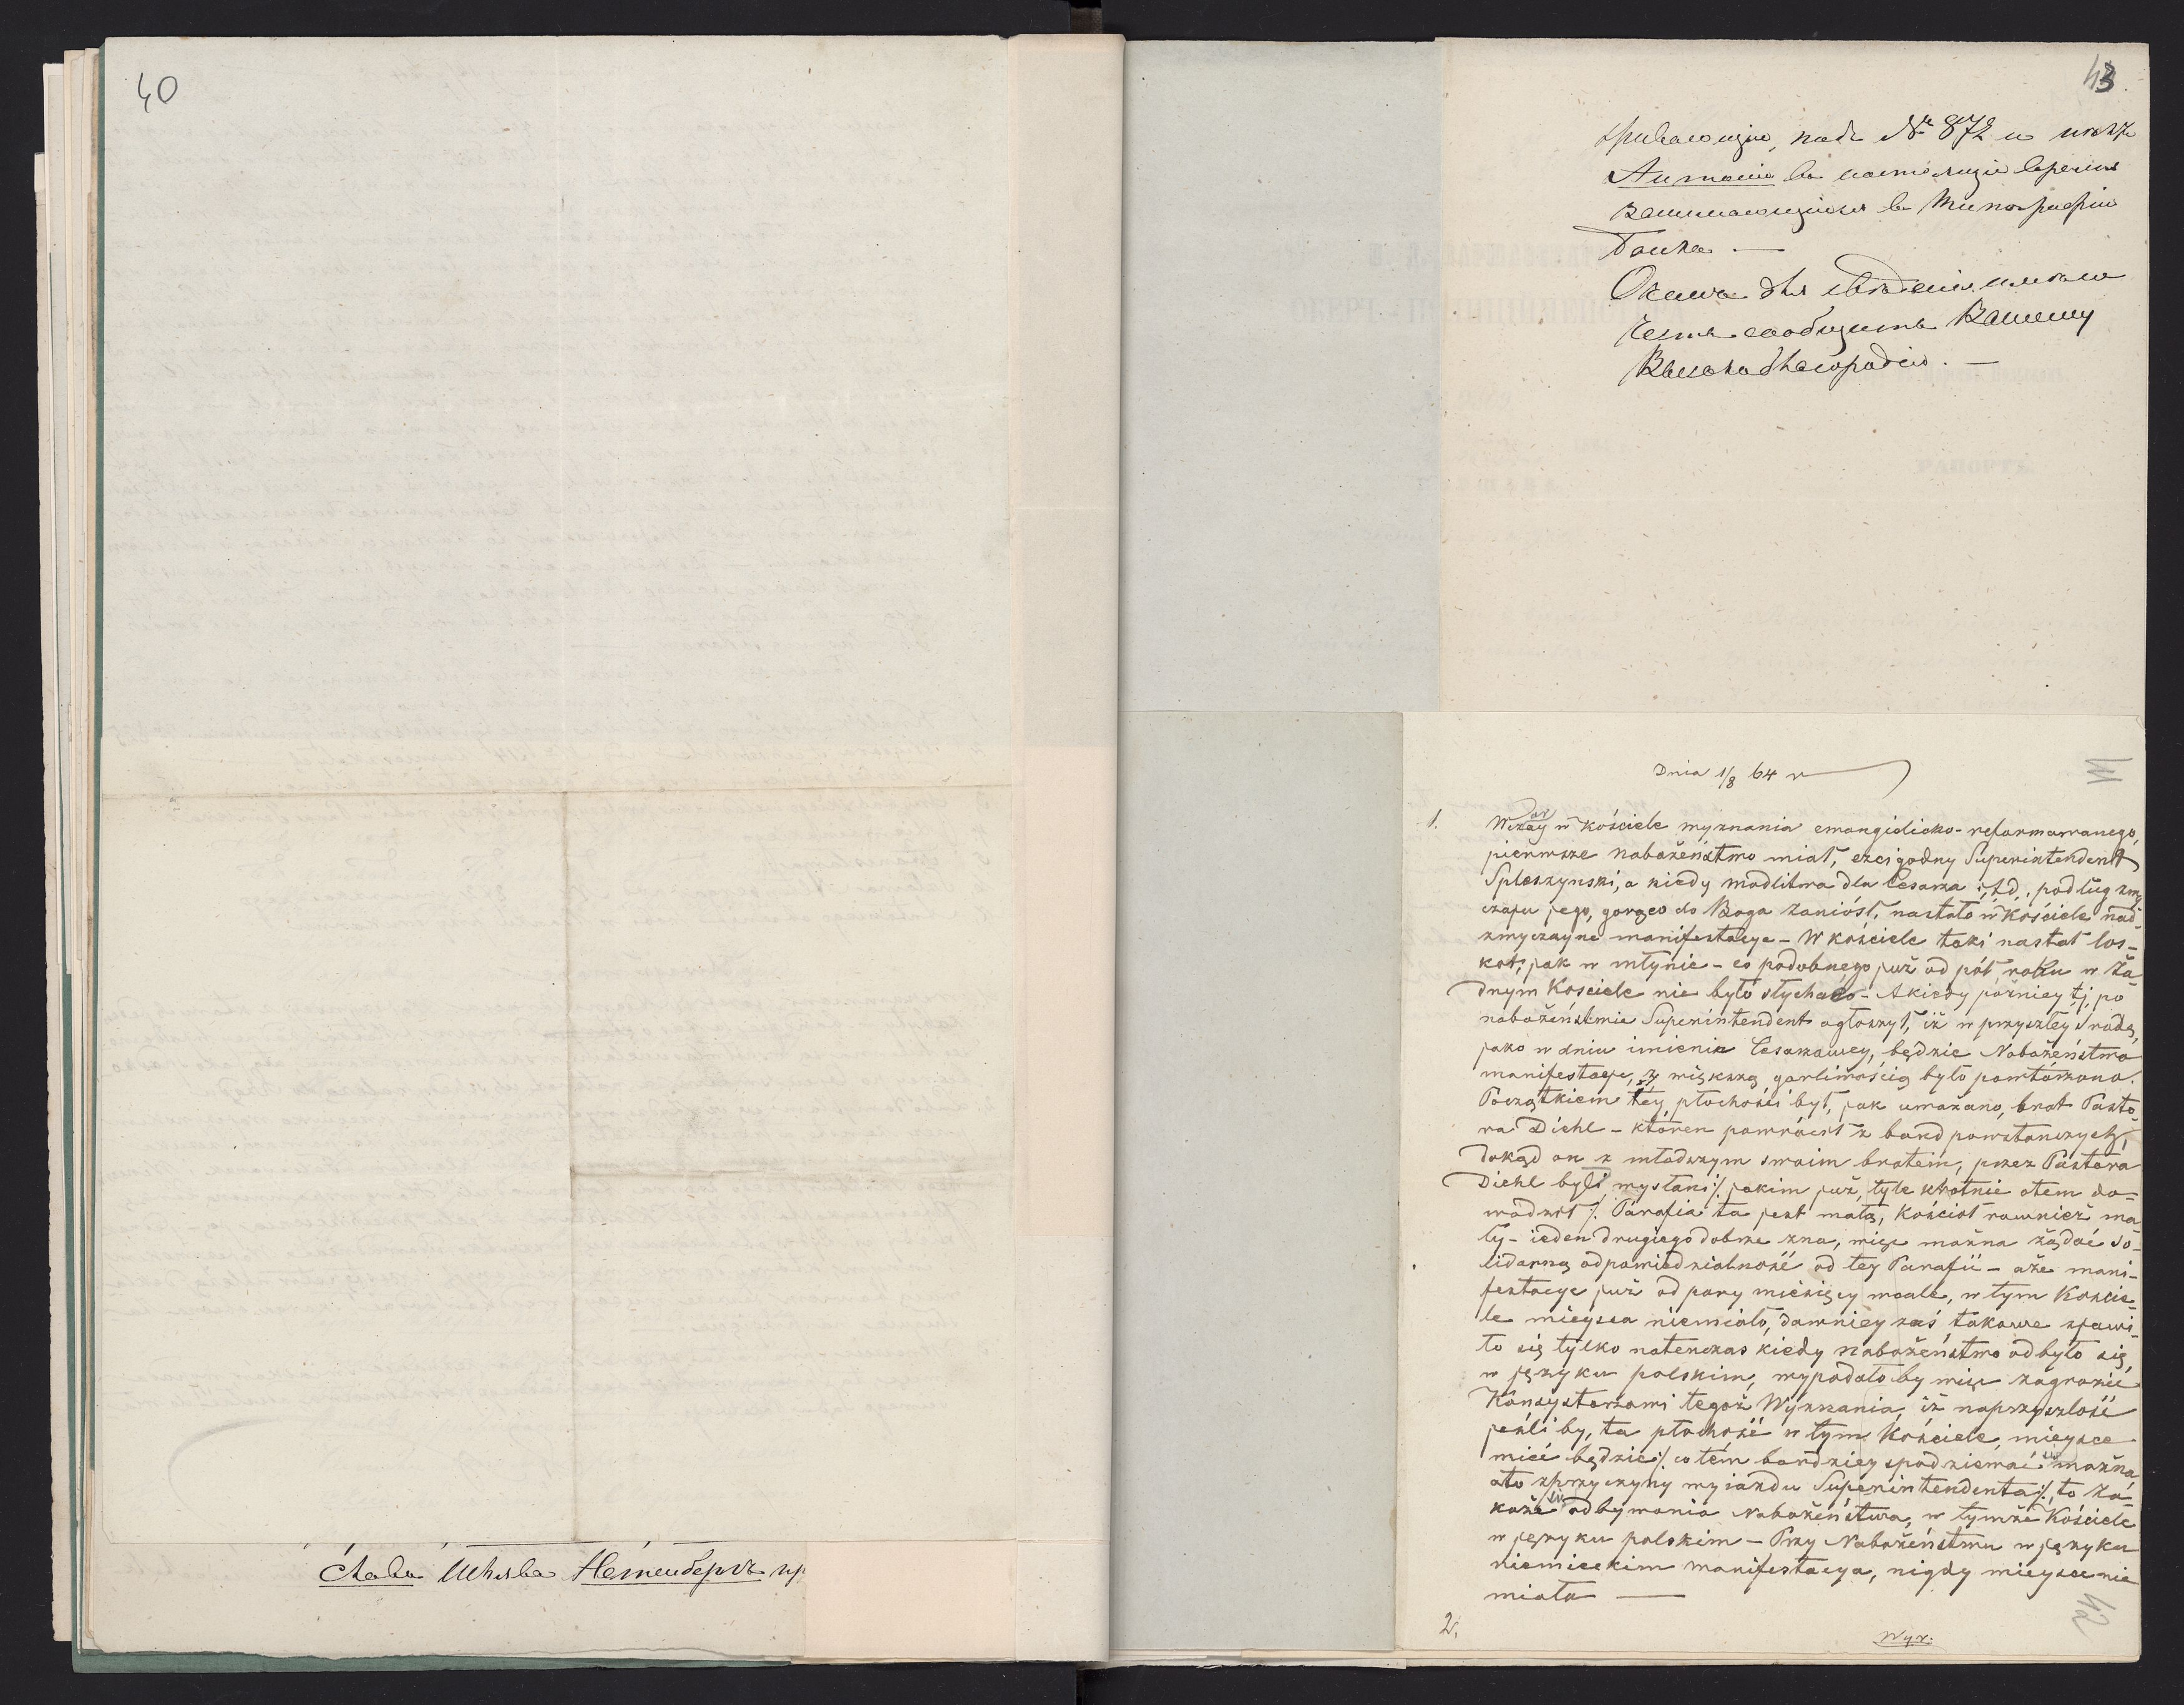 40
Слава Шлява Нотенберхъ
43
подъ № 872 и
Антонія въ настоящіе время
занимающійся въ Типографіи
Банка —
О чемъ для свѣдѣнія имѣю
Честь сообщить Вашему
Высокоблагородію. —
Dnia 1/8 64 r
1. Wczoray w kościele wyznania ewangielicko-reformowanego,
pierwsze nabożeństwo miał, czcigodny Superintendent
Spleszynski, a kiedy modlitwa dla Cesarza itd, podług zwy
czaju jego, gorąco do Boga zaniósł, nastało w Kościele nad-
zwyczayne manifestacye - W kościele taki nastał łos-
kot, jak w młynie - co podobnego już od pół roku w ża-
dnym Kosciele nie było słychać - A kiedy pożniey tj, po
nabożeństwie Superintendent ogłoszył, iż w przyszłey Srodę,
jako w dniu imienin Cesarzowey, będzie Nabożeństwo
manifestacye, z większą gorliwością było powtórzono.
Początkiem tey płochości był, jak uważano, brat Pasto-
ra Diehl - ktoren powrócił z band powstanczych,
dokąd on z młodszym swoim bratem, przez Pastora
Diehl byli wysłani /. jakim już, tyle khotnie otem do-
wodził /. Parafia ta jest mała, Kościoł rownież ma-
ły - ieden drugiego dobrze zna, więc można żądać so-
lidarną odpowiedzialność od tey Parafii - aże mani-
festacye już od pary miesięcy wcale, w tym Koscie-
le mieysca niemiało, dawniey zaś, takowe zjawi-
ło się tylko natenczas kiedy nabożeństwo odbyło się,
w języku polskim, wypadało by więc zagrozić
Konsystorzowi tegoż Wyznania, iż naprzyszłość
jeśli by, ta płochość w tym Kościele, mieysce
mieć będzie /. co tém bardziey spodziewać się można,
ato zprzyczyny wyiazdu Superintendenta /. to za-
każe się odbywania Nabożeństwa, w tymże Kościele
w języku polskim - Przy Nabożeństwu w języku
niemieckim manifestacya, nigdy mieysce nie
miała —
2.
42